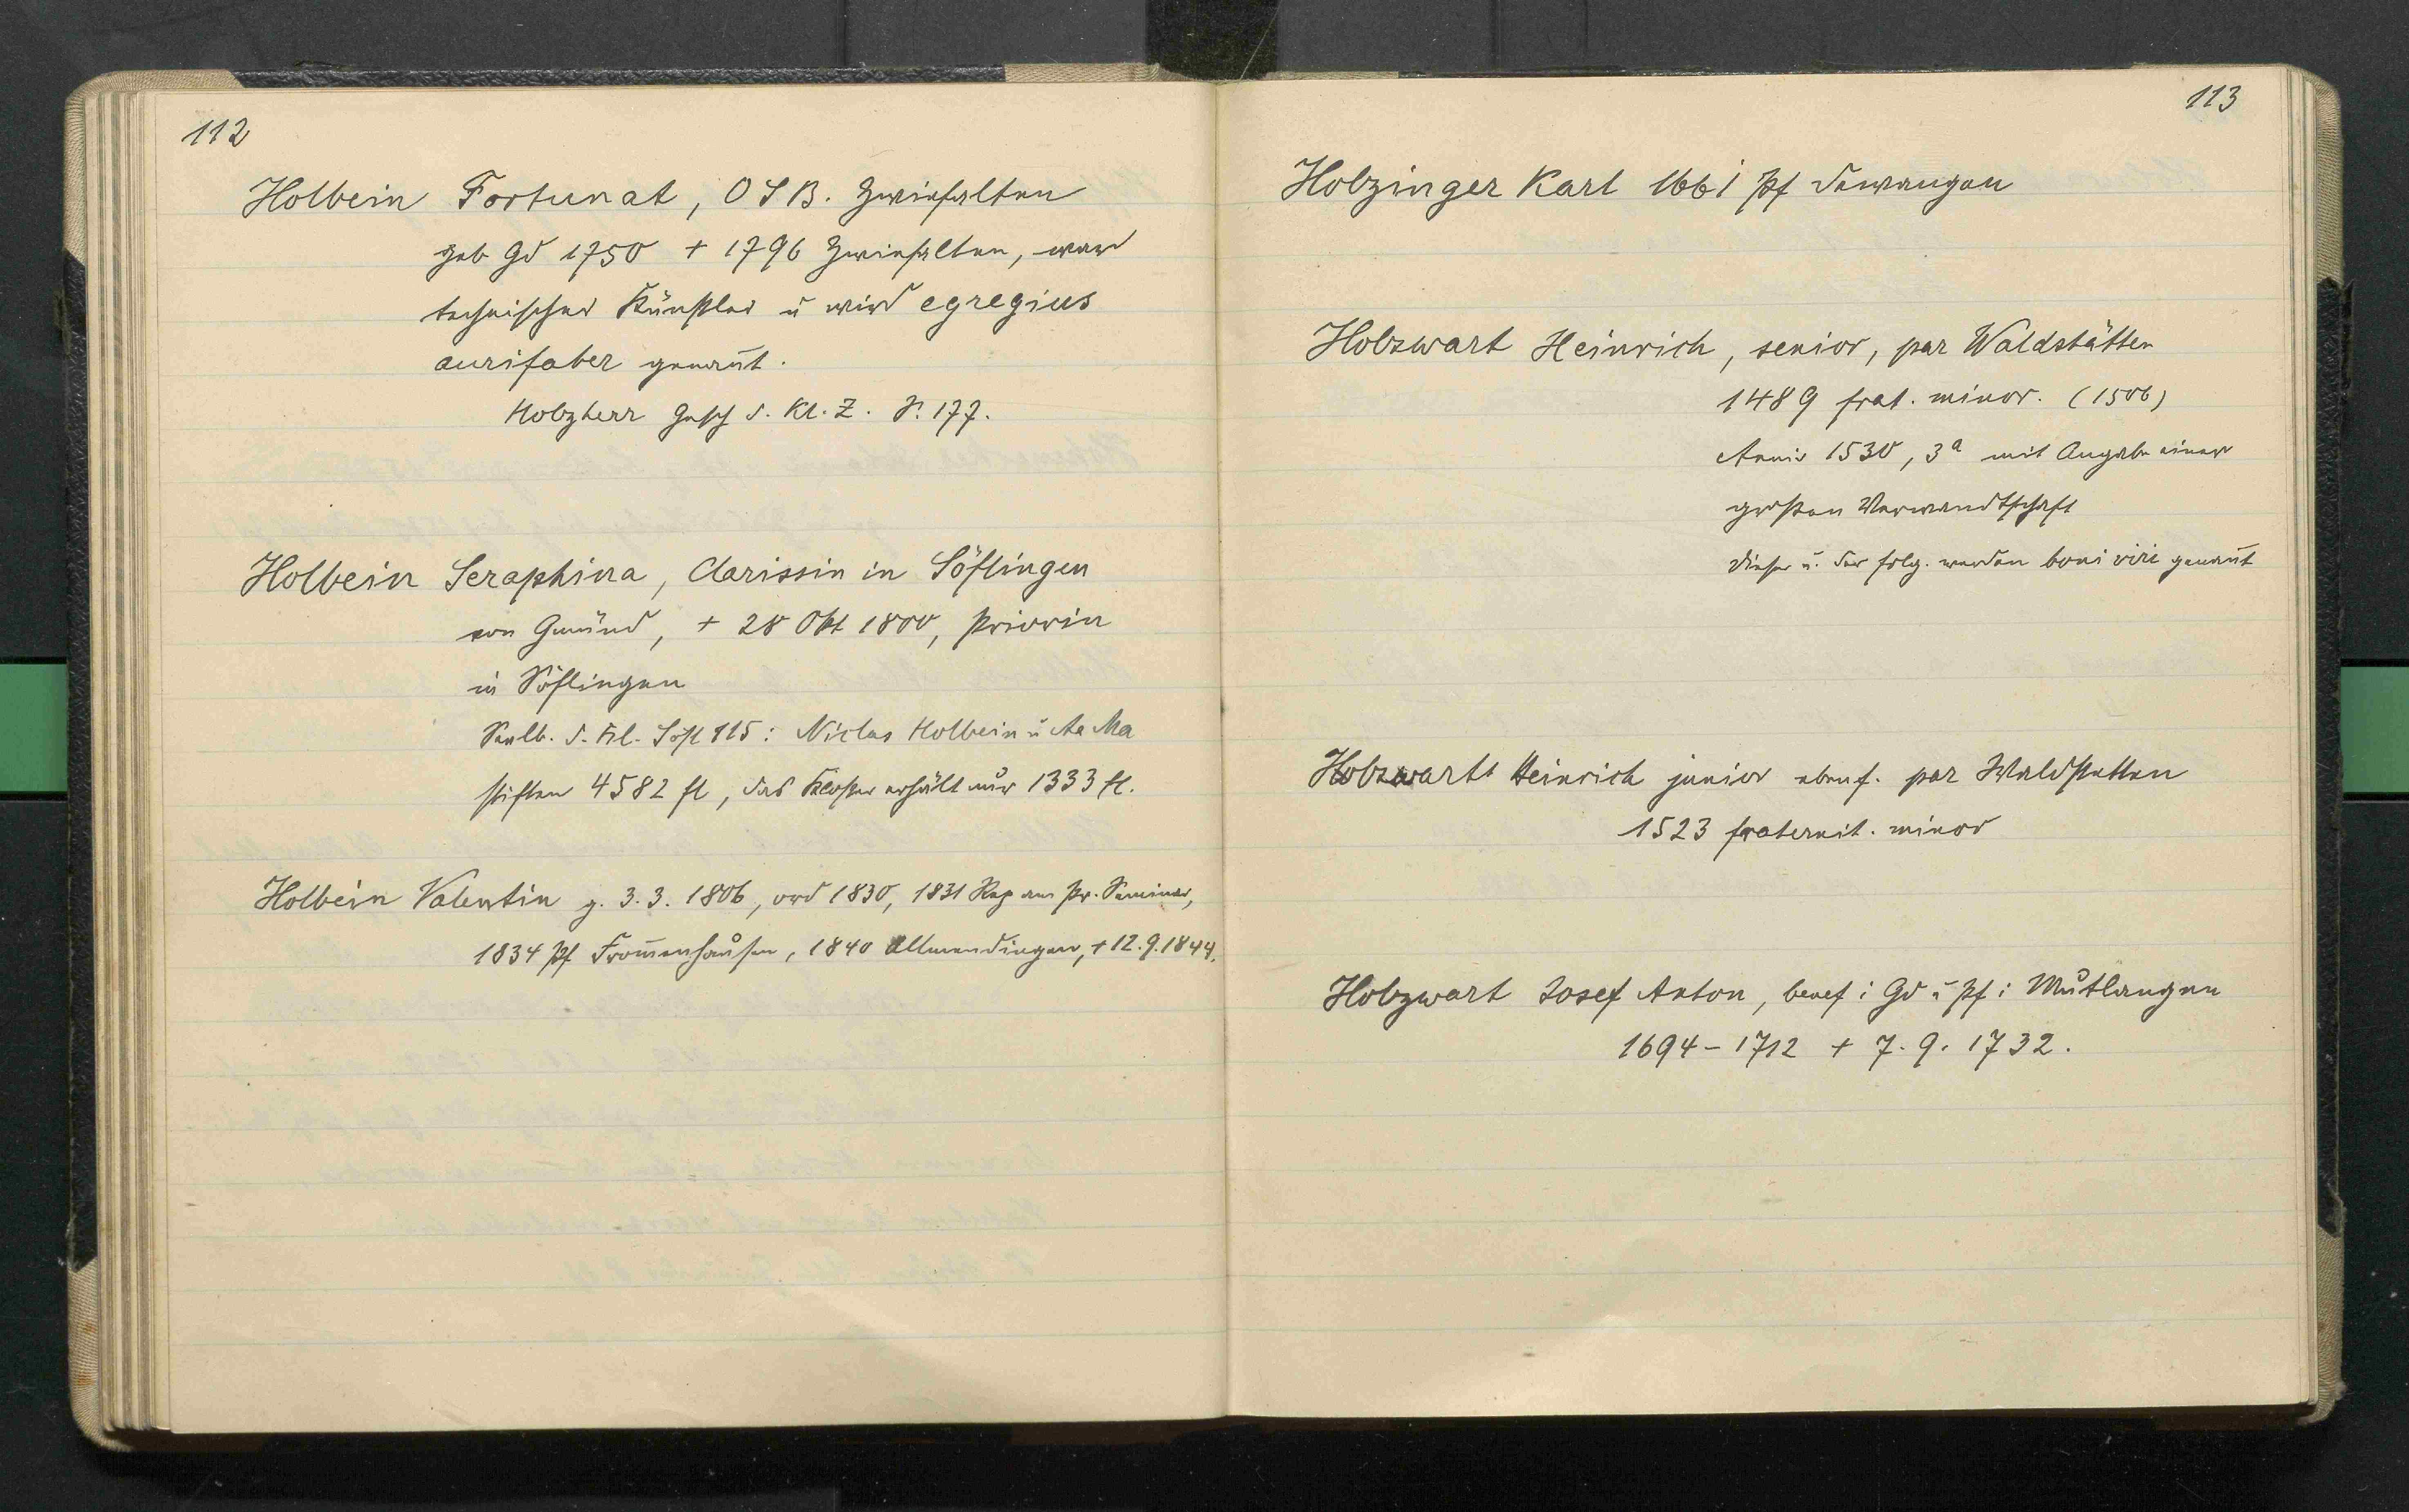 112
Holbein Fortunat, OSB. Zwiefalten
geb Gd 1750 + 1796 Zwiefalten, war
technischer Künstler u wird egregius
aurifaber genan̄t.
Holzherr Gesch d. Kl. Z. S. 177.
Holbein Seraphina, Clarissin in Söflingen
von Gmünd, + 28 Okt 1800, Priorin
in Söflingen
Salb. d. Kl. Söfl 115: Niclas Holbein u A Ma
stiften 4582 fl, das Kloster erhält nur 1333 fl.
Holbein Valentin g. 3.3. 1806, ord 1830, 1831 Rep am Pr. Seminar,
1834 Pf From̄enhausen, 1840 Allmendingen, + 12.9.1844.
113
Holzinger Karl 1661 Pf Dewangen
Holzwart Heinrich, senior, par Waldstätten
1489 frat. minor. (1506)
Anniv 1530, 3a mit Angabe einer
großen Verwandtschaft
dieser u. der folg. werden boni viri genan̄t
Holzwart Heinrich junior ebenf. par Waldstetten
1523 fraternit. minor
Holzwart Josef Anton, benef i Gd u Pf i Mutlangen
1694-1712 + 7.9.1732.